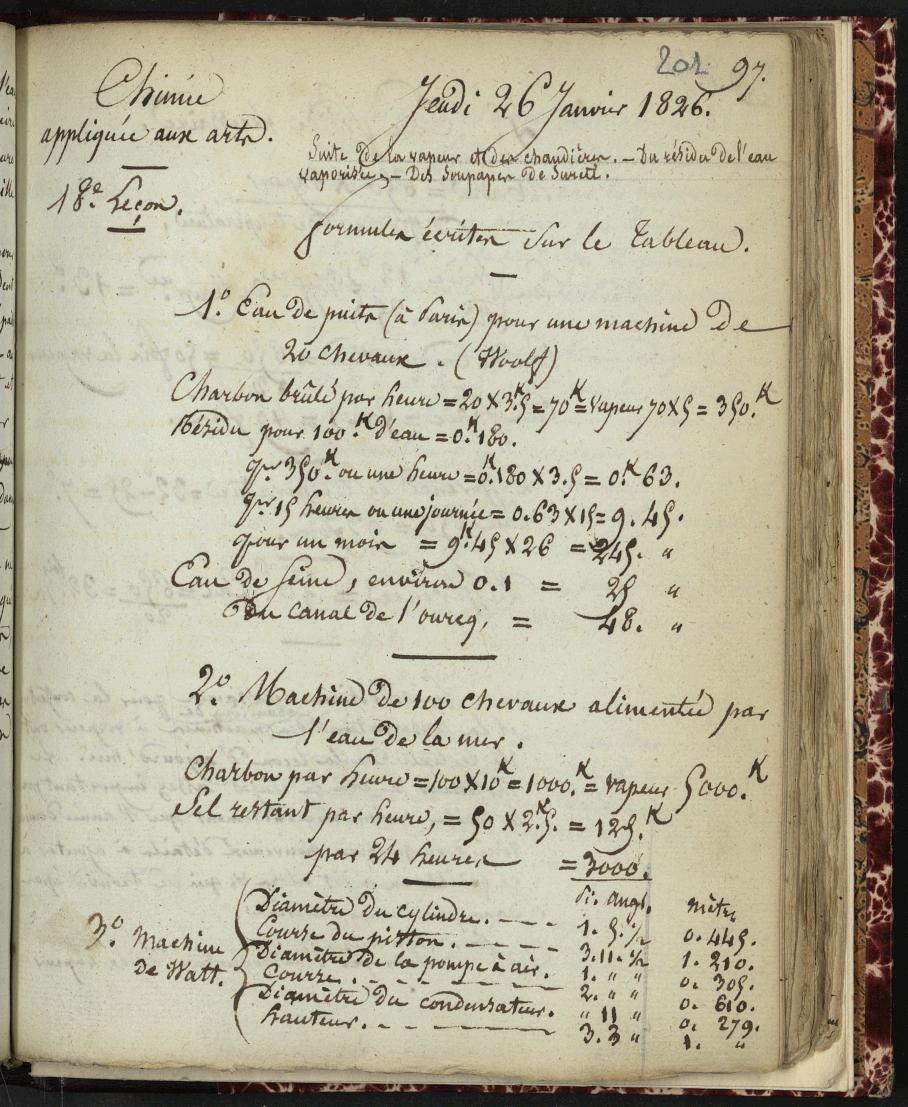 201 97.
Chimie
appliquée aux arts.
Jeudi 26 Janvier 1826.
Suite de la vapeur et des chaudières. – Du résidu de l'eau
vaporisée, – Des Soupapes de Sureté.
18e Leçon.
formules écrites sur le Tableau.
1º. Eau de puits (à Paris) pour une machine De
20 chevaux. (Woolf)
Charbon brûlé par heure = 20 X 3.K5 = 70K = vapeur 70 X 5 = 350.K
Résidu pour 100.K d'eau = 0.K180.
pr 350K ou une heure = 0.K180 X 3.5 = 0.K63.
pr 15 heures ou une journée = 0.63 X 15 = 9.45.
pour un mois = 9K.45 X 26 = 245. "
Eau de Seine, environ 0.1 = 25 "
Du canal de l'ourcq, = 48. "
2º. Machine De 100 chevaux alimentée par
l'eau de la mer.
Charbon par heure = 100 X 10K = 1000.K = vapeur 5000.K
Sel restant par heure, = 50 X 2.K5. = 125.K
par 24 heures = 3000.
3º. Machine
de Watt.
Pi. angl. mètr.
Diamètre du cylindre. 1. 5. ½ 0. 445.
Course du piston. 3. 11. ½ 1. 210.
Diamètre de la pompe à air. 1. " " 0. 305.
Course. 2. " " 0. 610.
Diamètre du condensateur. " 11 " 0. 279.
hauteur. 3. 3 " 1. "